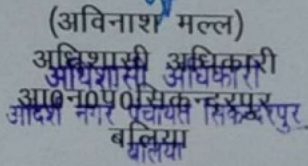 (अविनाश मल्ल)
अधिशासी अधिकारी
अधिशासी अधिकारी
आ0न0पं0सिकन्दरपुर
आदर्श नगर पंचायत सिकन्दरपुर
बलिया
बलिया